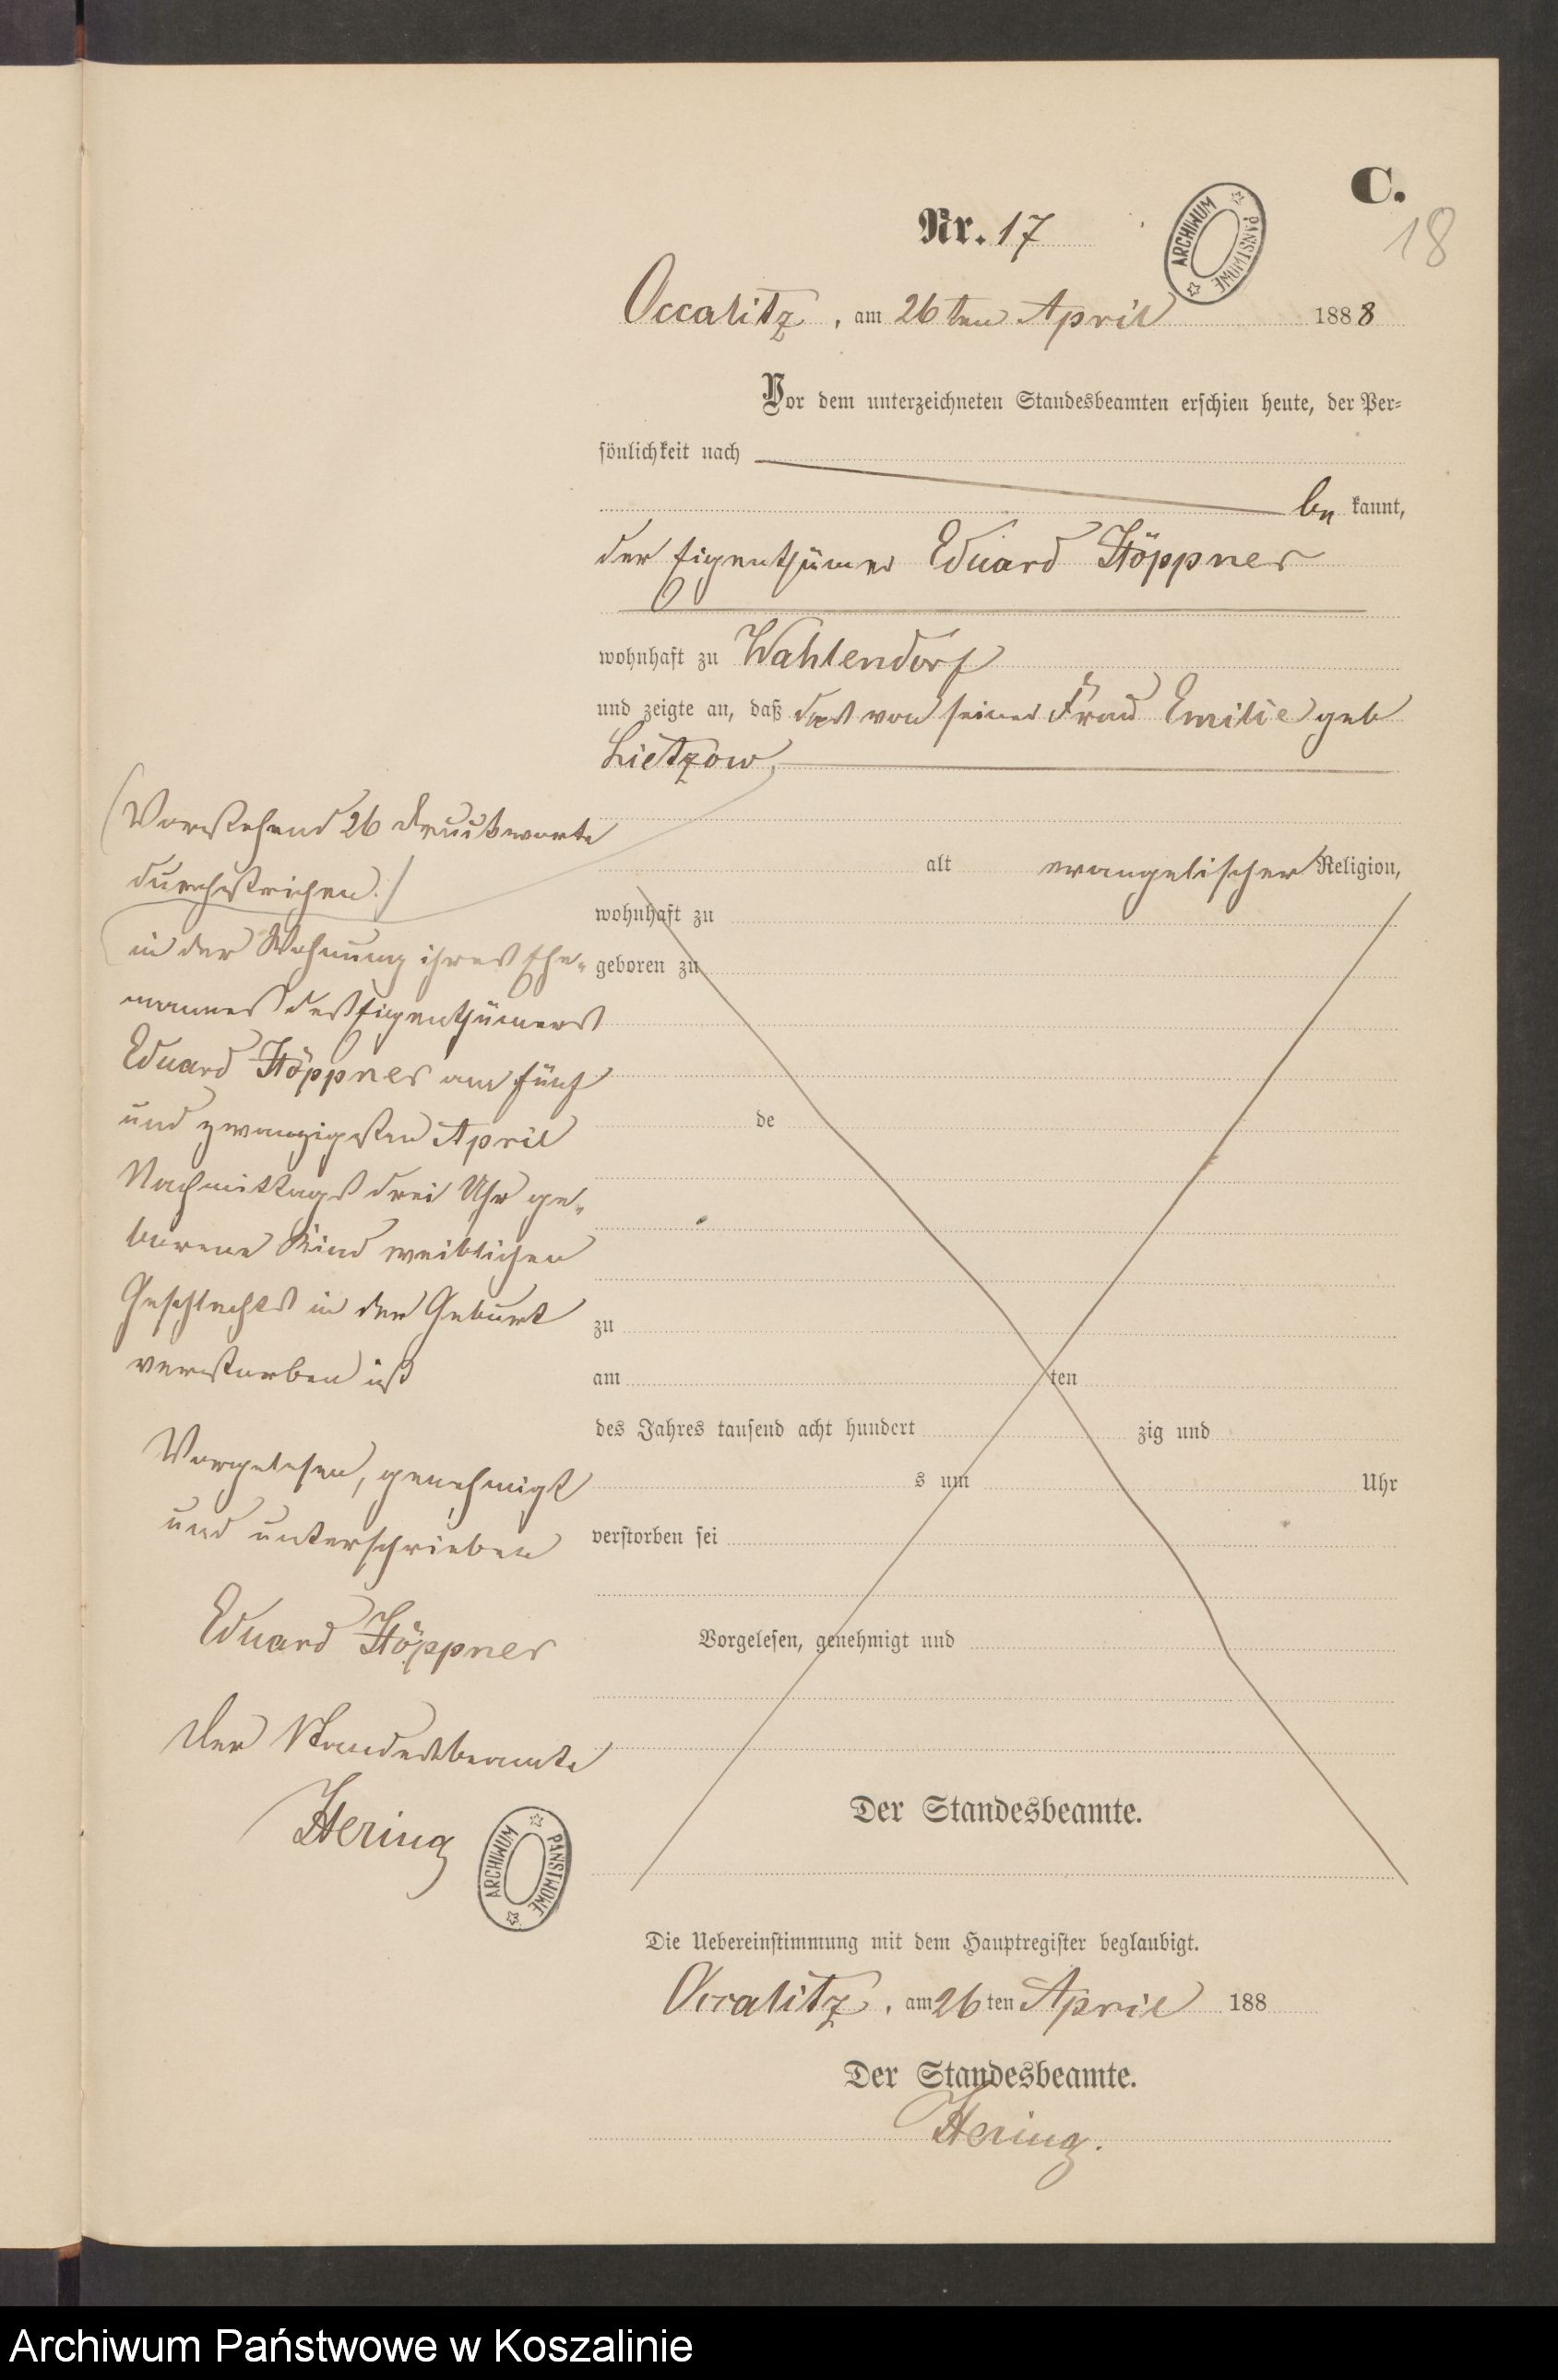 C.
18
Nr. 17
ARCHIWUM PAŃSTWOWE
Occalitz, am 26ten April 1888
Vor dem unterzeichneten Standesbeamten erschien heute, der Per-
sönlichkeit nach
be kannt,
der Eigenthümer Eduard Höppner
wohnhaft zu Wahlendorf
und zeigte an, daß das von seiner Frau Emilie geb
Lietzow,
(Vorstehend 26 Druckworte
durchstrichen.)
in der Wohnung ihres Ehe-
mannes des Eigenthümers
Eduard Höppner am fünf
und zwanzigsten April
Nachmittags drei Uhr ge-
borene Kind weiblichen
Geschlechts in der Geburt
verstorben ist
Vorgelesen, genehmigt
und unterschrieben
Eduard Höppner
Der Standesbeamte
Hering
ARCHIWUM PAŃSTWOWE
alt evangelischer Religion,
wohnhaft zu
geboren zu
de
zu
am ten
des Jahres tausend acht hundert zig und
s um Uhr
verstorben sei
Vorgelesen, genehmigt und
Der Standesbeamte.
Die Uebereinstimmung mit dem Hauptregister beglaubigt.
Occalitz, am 26 ten April 188
Der Standesbeamte.
Hering.
Archiwum Państwowe w Koszalinie